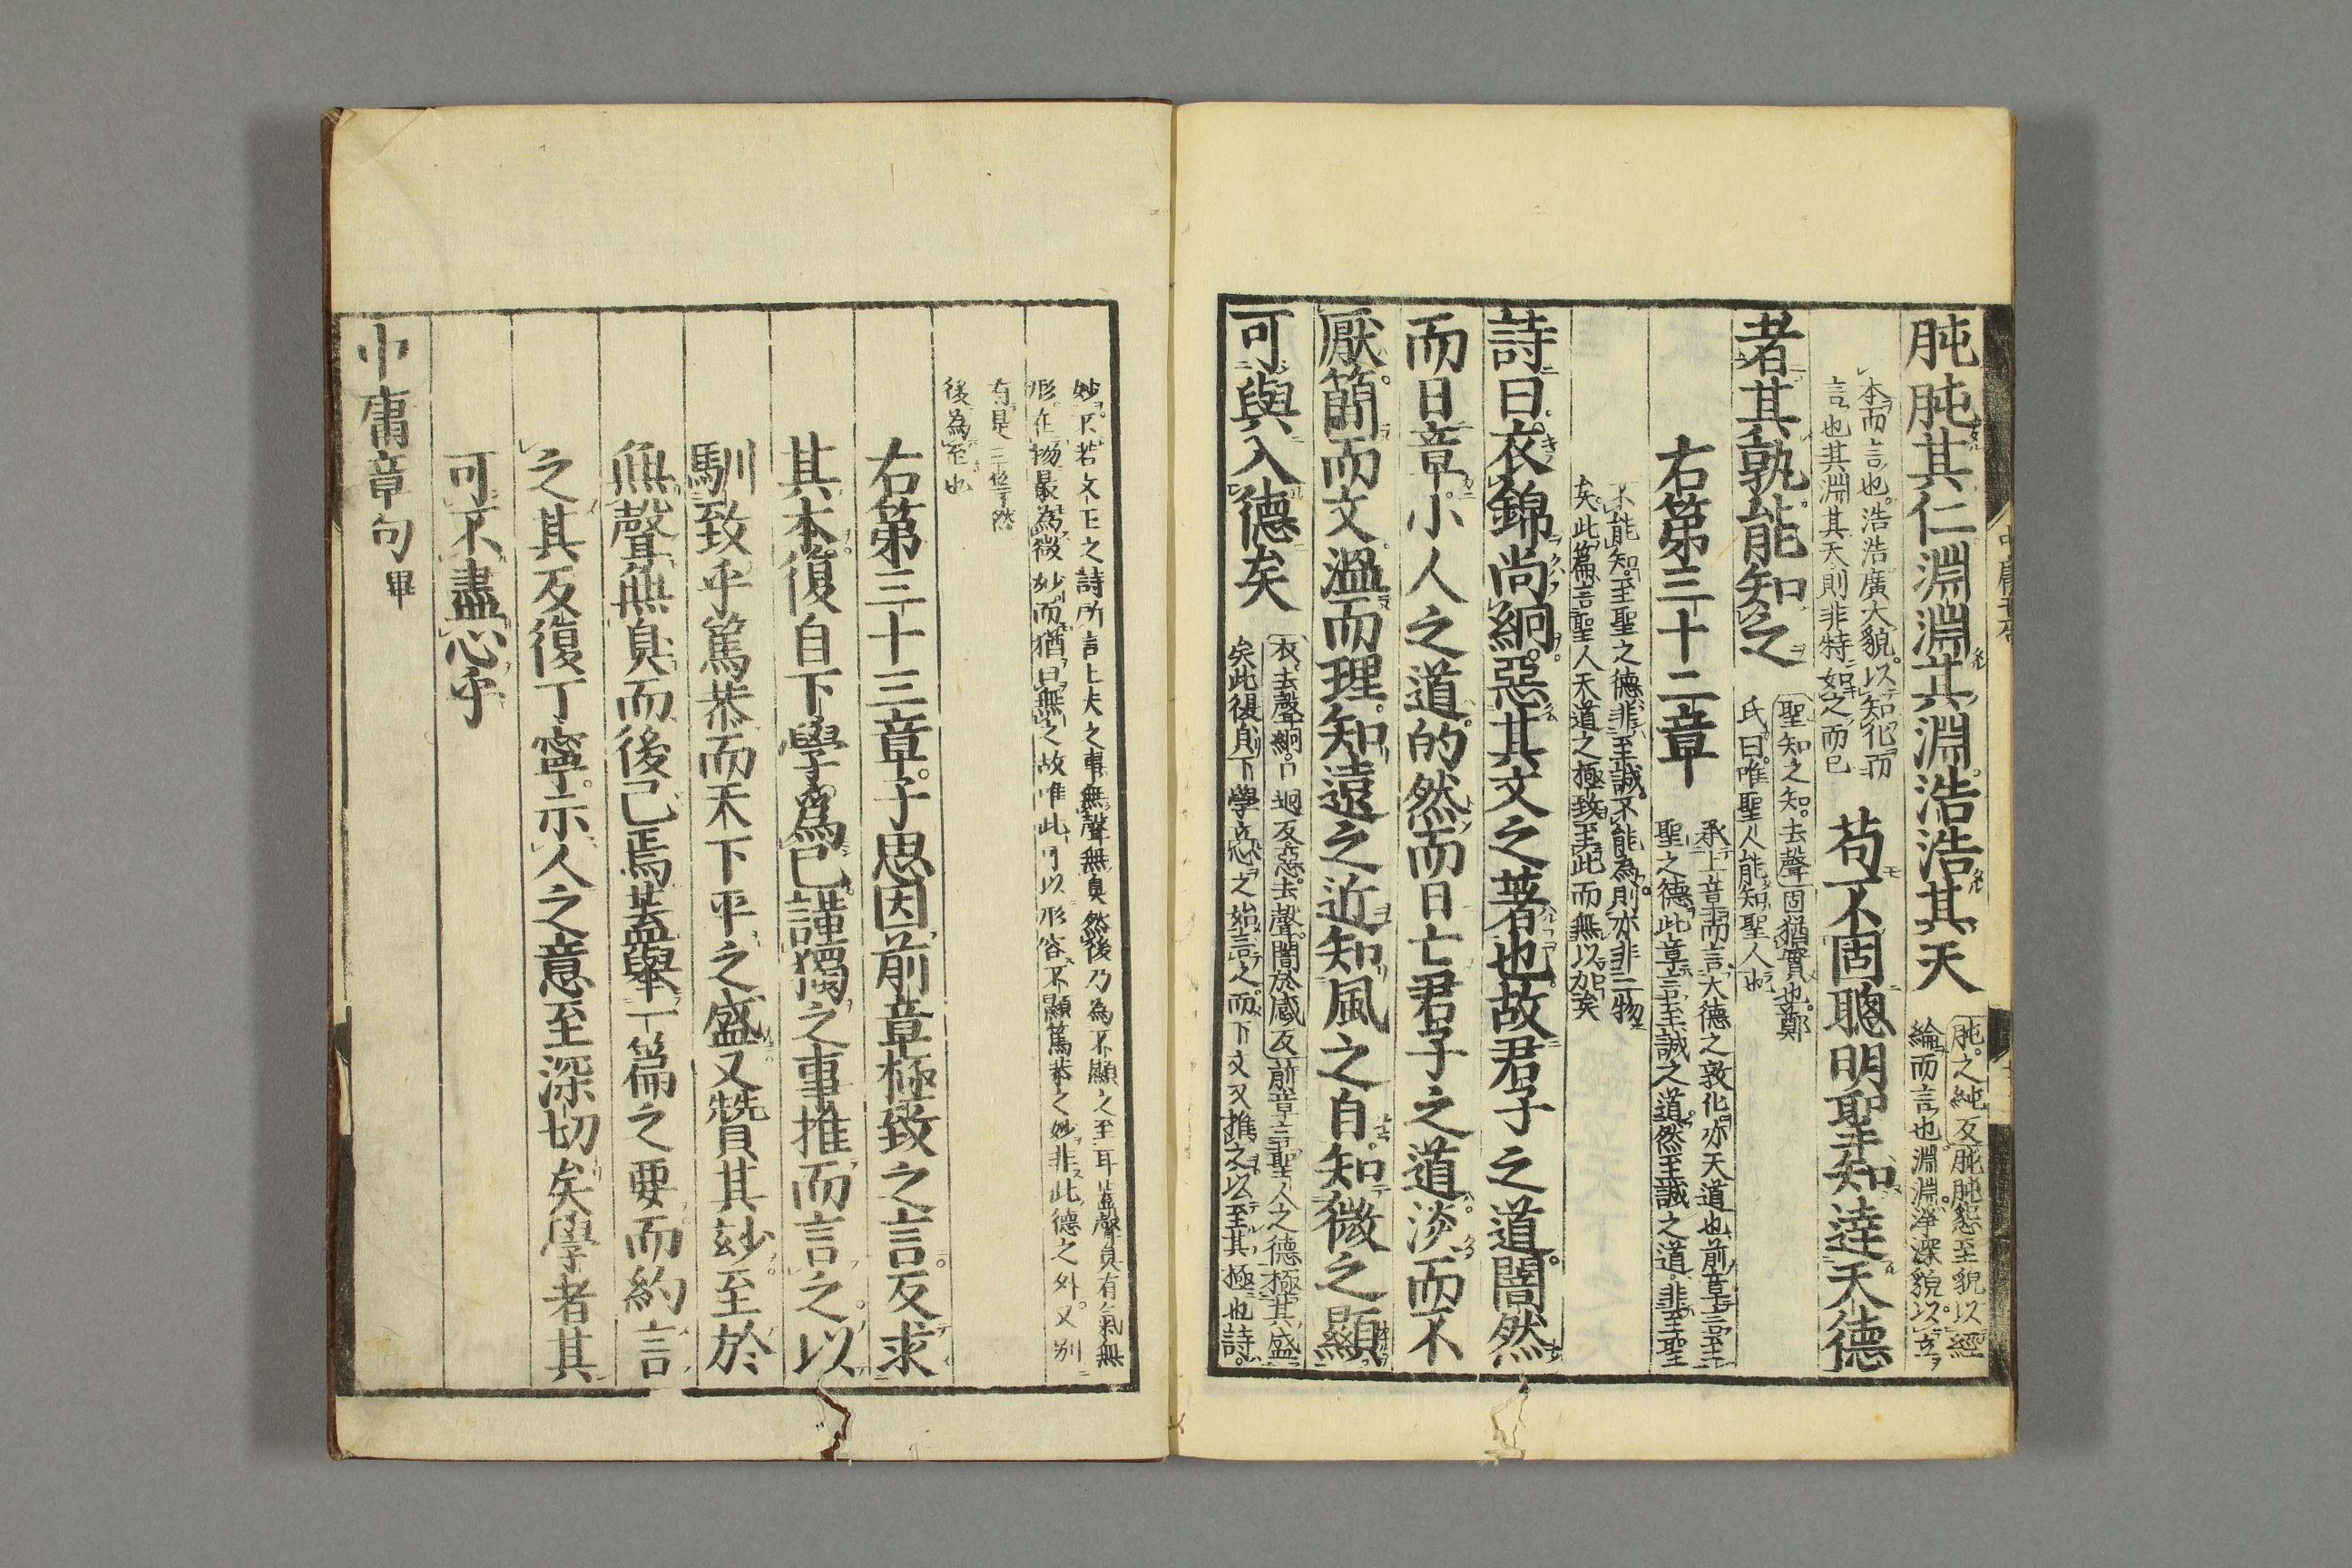 肫肫其仁淵淵其淵浩浩其天
肫之純反肫肫懇至貌以經
綸而言也淵淵淨深貌以立
本而言也浩浩廣大貌以知化而
言也其淵其天則非特如之而已
苟不固聰明聖知達天德
者其孰能知之
聖知之知去聲固猶實也鄭
氏曰唯聖人能知聖人也
右第三十二章
承上章而言大德之敦化亦天道也前章言至
聖之德此章言至誠之道然至誠之道非至聖
不能知至聖之德非至誠不能為則亦非二物
矣此篇言聖人天道之極致至此而無以加矣
詩曰衣錦尚絅惡其文之著也故君子之道闇然
而日章小人之道的然而日亡君子之道淡而不
厭簡而文溫而理知遠之近知風之自知微之顯
可與入德矣
衣去聲絅口迥反惡去聲闇於感反前章言聖人之德極其盛
矣此復自下學立心之始言之而下文又推之以至其極也詩
妙不若文王之詩所言上天之事無聲無臭然後乃為不顯之至耳蓋聲臭有氣無
形在物最為微妙而猶曰無之故唯此可以形容不顯篤恭之妙非此德之外又別
有是三等然
後為至也
右第三十三章子思因前章極致之言反求
其本復自下學爲己謹獨之事推而言之以
馴致乎篤恭而天下平之盛又贊其妙至於
無聲無臭而後已焉蓋舉一篇之要而約言
之其反復丁寧示人之意至深切矣學者其
可不盡心乎
中庸章句畢